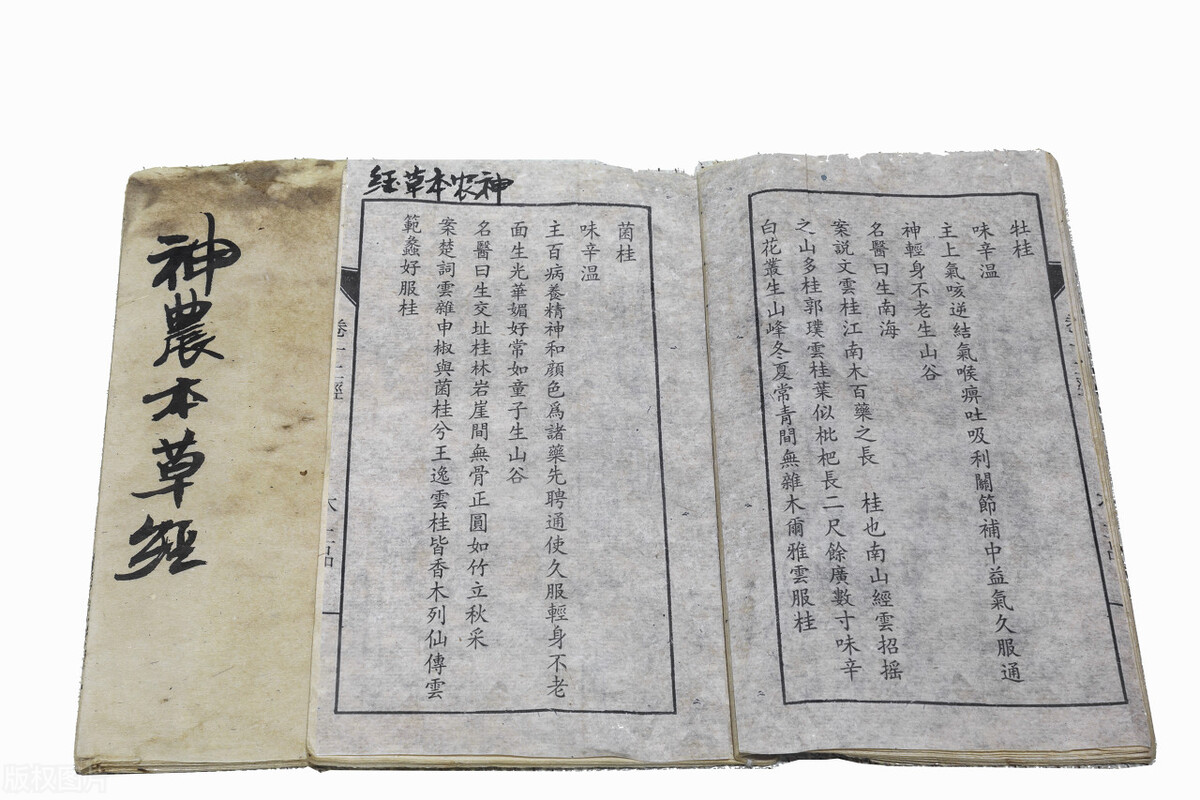 神農本草經
神农本草经
牡桂
味辛温
主上氣咳逆結氣喉痹吐吸利關節補中益氣久服通
神輕身不老生山谷
名醫曰生南海
案説文雲桂江南木百藥之長 桂也南山經雲招摇
之山多桂郭璞雲桂葉似枇杷長二尺餘廣數寸味辛
白花叢生山峰冬夏常青間無雜木爾雅雲服桂
菌桂
味辛温
主百病養精神和顔色爲諸藥先聘通使久服輕身不老
面生光華媚好常如童子生山谷
名醫曰生交址桂林岩崖間無骨正圓如竹立秋采
案楚詞雲雜申椒與菌桂兮王逸雲桂皆香木列仙傳雲
範蠡好服桂
版权图片